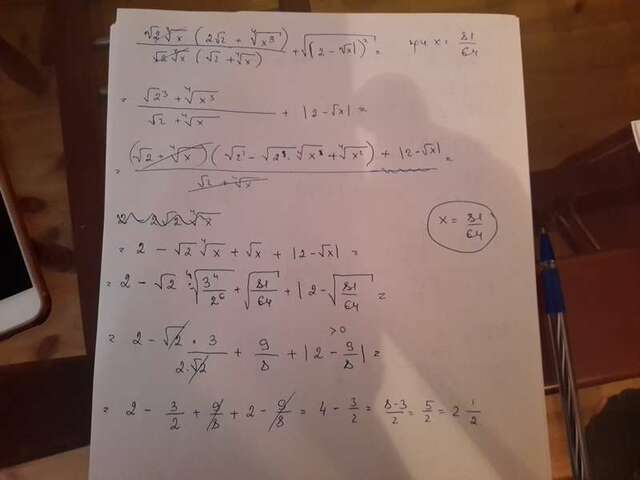 √2 ∜x (2√2 + ∜x³) / √2 ∜x (√2 + ∜x) + √(|2 - √x|)² = при x = 81/64
= √2³ + ∜x³ / √2 + ∜x + |2 - √x| =
= (√2 + ∜x)(√2² - √2 · ∜x + ∜x²) / √2 + ∜x + |2 - √x| =
x = 81/64
= 2 - √2 ∜x + √x + |2 - √x| =
= 2 - √2 · ∜(3⁴/2⁶) + √(81/64) + |2 - √(81/64)| =
>0
= 2 - √2 · 3 / 2·√2 + 9/8 + |2 - 9/8| =
= 2 - 3/2 + 9/8 + 2 - 9/8 = 4 - 3/2 = 8-3/2 = 5/2 = 2 1/2